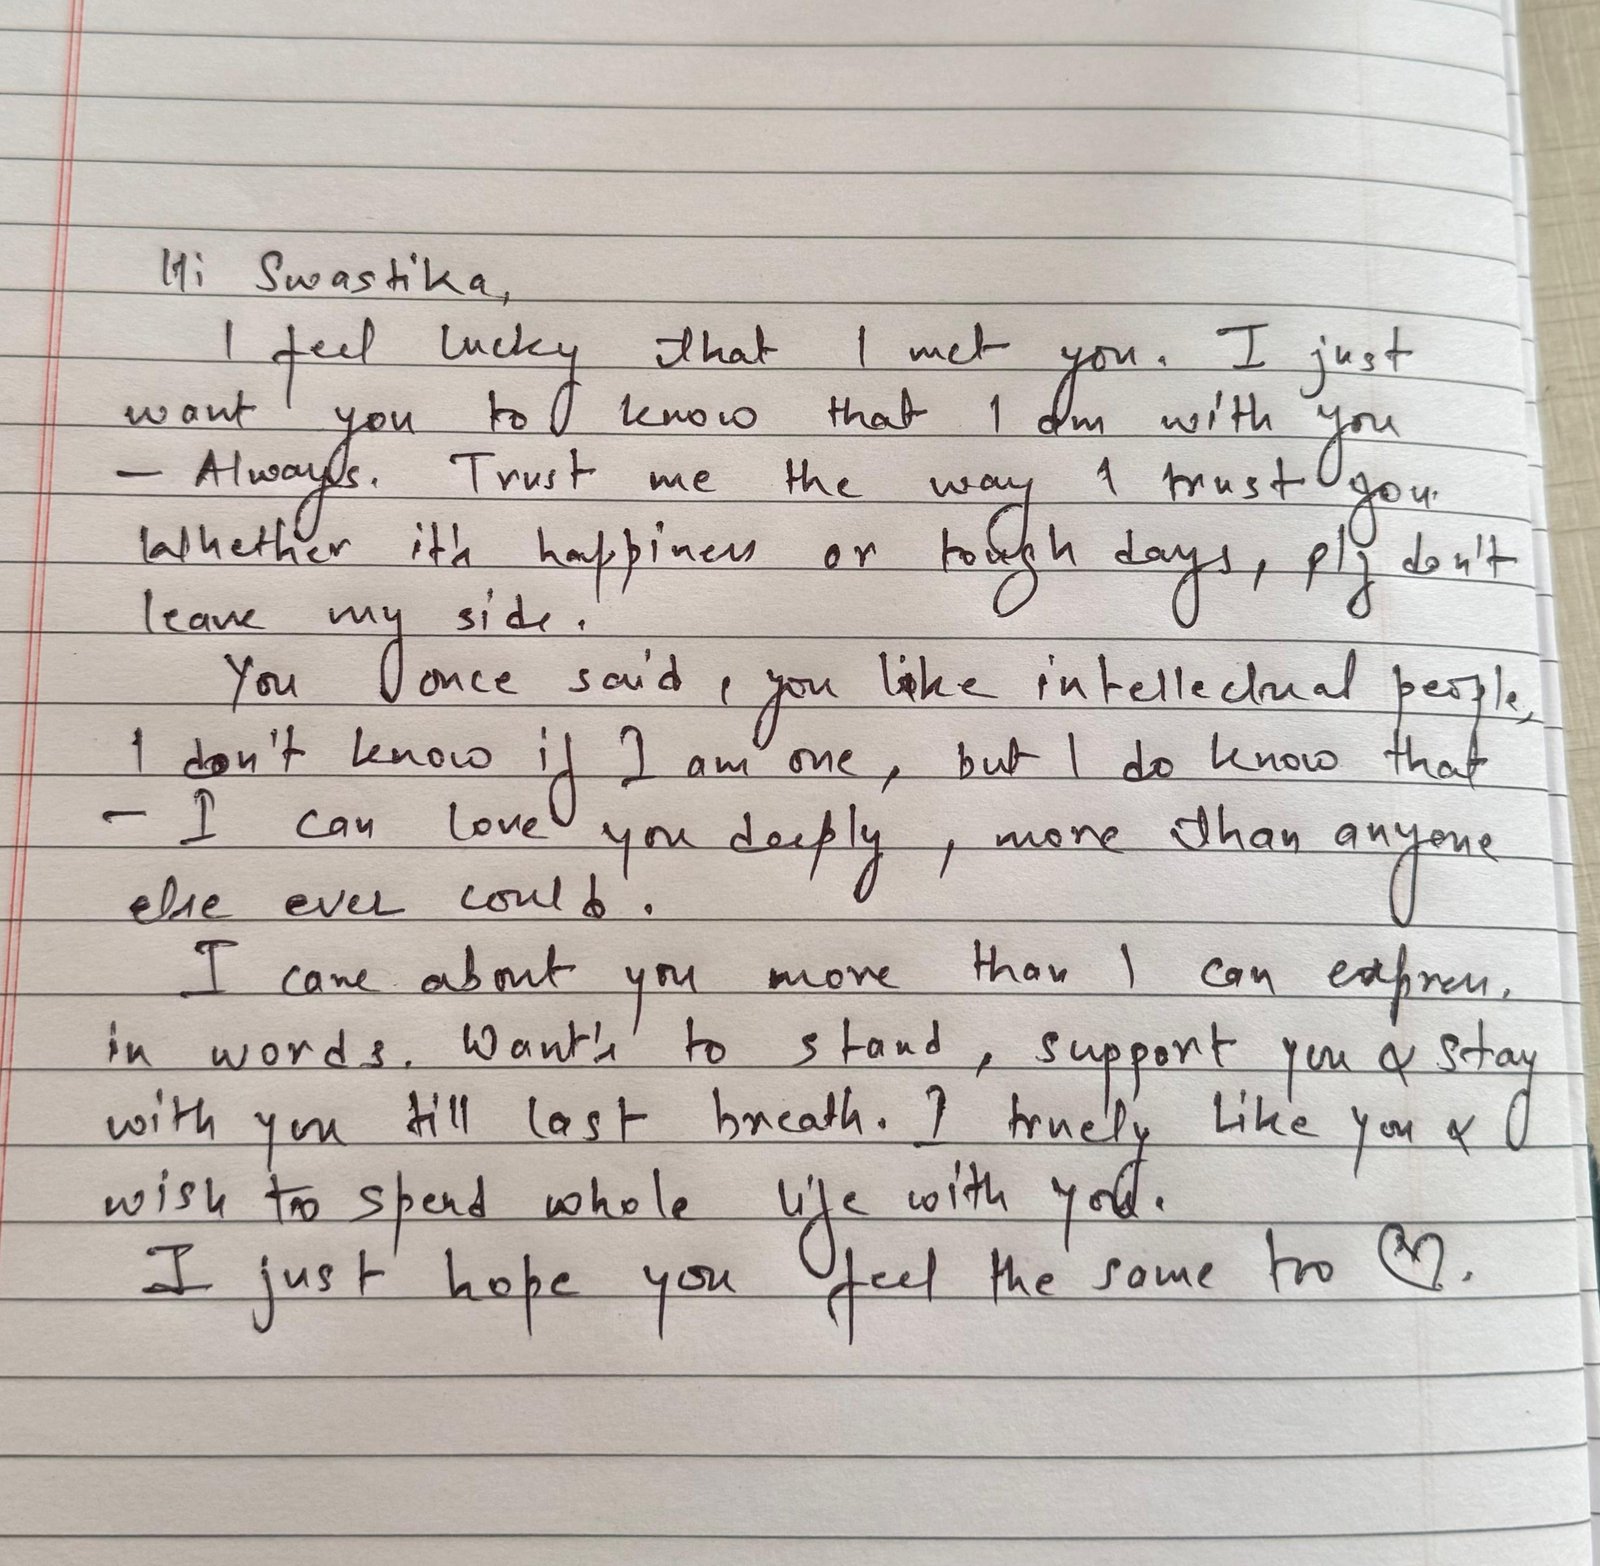 Hi Swastika,
I feel lucky that I met you. I just
want you to know that I am with you
- Always. Trust me the way I trust you.
Whether it's happiness or tough days, plz don't
leave my side.
You once said, you like intellectual people,
I don't know if I am one, but I do know that
- I can love you deeply, more than anyone
else ever could.
I care about you more than I can express.
in words. Want's to stand, support you & stay
with you till last breath. I truely like you &
wish to spend whole life with you.
I just hope you feel the same too ♡.